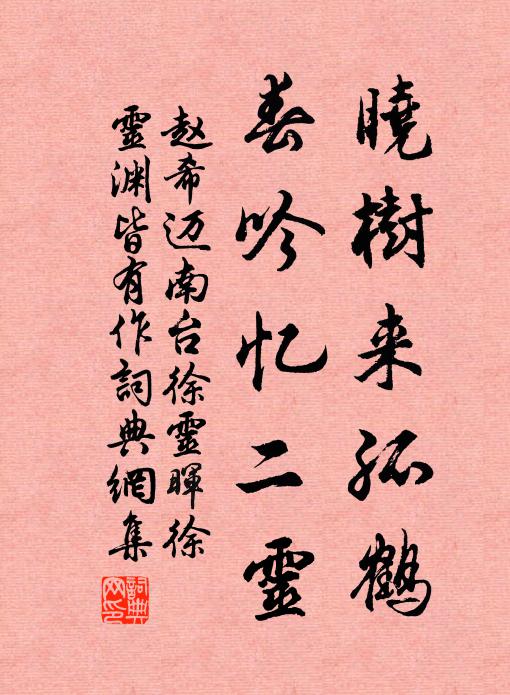 曉樹来孤鶴
春吟忆二靈
赵希迈南台徐靈暉徐
靈渊皆有作詞典網集
詞典網印